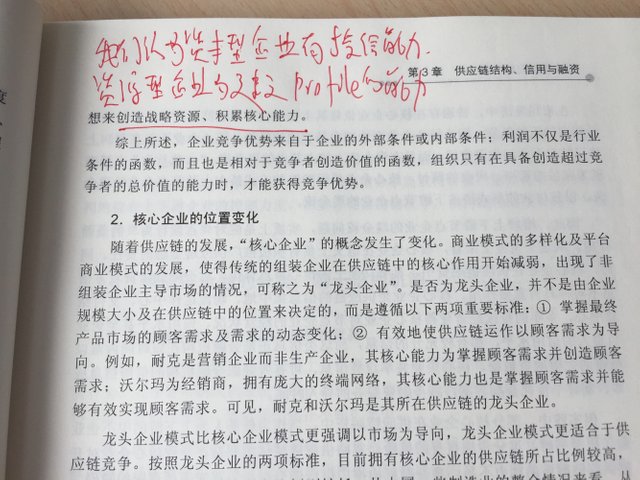 我们认为资本型企业有授信能力.
资源型企业有建立 profile 的能力
第 3 章 供应链结构、信用与融资
想来创造战略资源、积累核心能力。
综上所述，企业竞争优势来自于企业的外部条件或内部条件；利润不仅是行业
条件的函数，而且也是相对于竞争者创造价值的函数，组织只有在具备创造超过竞
争者的总价值的能力时，才能获得竞争优势。
2．核心企业的位置变化
随着供应链的发展，“核心企业”的概念发生了变化。商业模式的多样化及平台
商业模式的发展，使得传统的组装企业在供应链中的核心作用开始减弱，出现了非
组装企业主导市场的情况，可称之为“龙头企业”。是否为龙头企业，并不是由企业
规模大小及在供应链中的位置来决定的，而是遵循以下两项重要标准：① 掌握最终
产品市场的顾客需求及需求的动态变化；② 有效地使供应链运作以顾客需求为导
向。例如，耐克是营销企业而非生产企业，其核心能力为掌握顾客需求并创造顾客
需求；沃尔玛为经销商，拥有庞大的终端网络，其核心能力也是掌握顾客需求并能
够有效实现顾客需求。可见，耐克和沃尔玛是其所在供应链的龙头企业。
龙头企业模式比核心企业模式更强调以市场为导向，龙头企业模式更适合于供
应链竞争。按照龙头企业的两项标准，目前拥有核心企业的供应链所占比例较高，